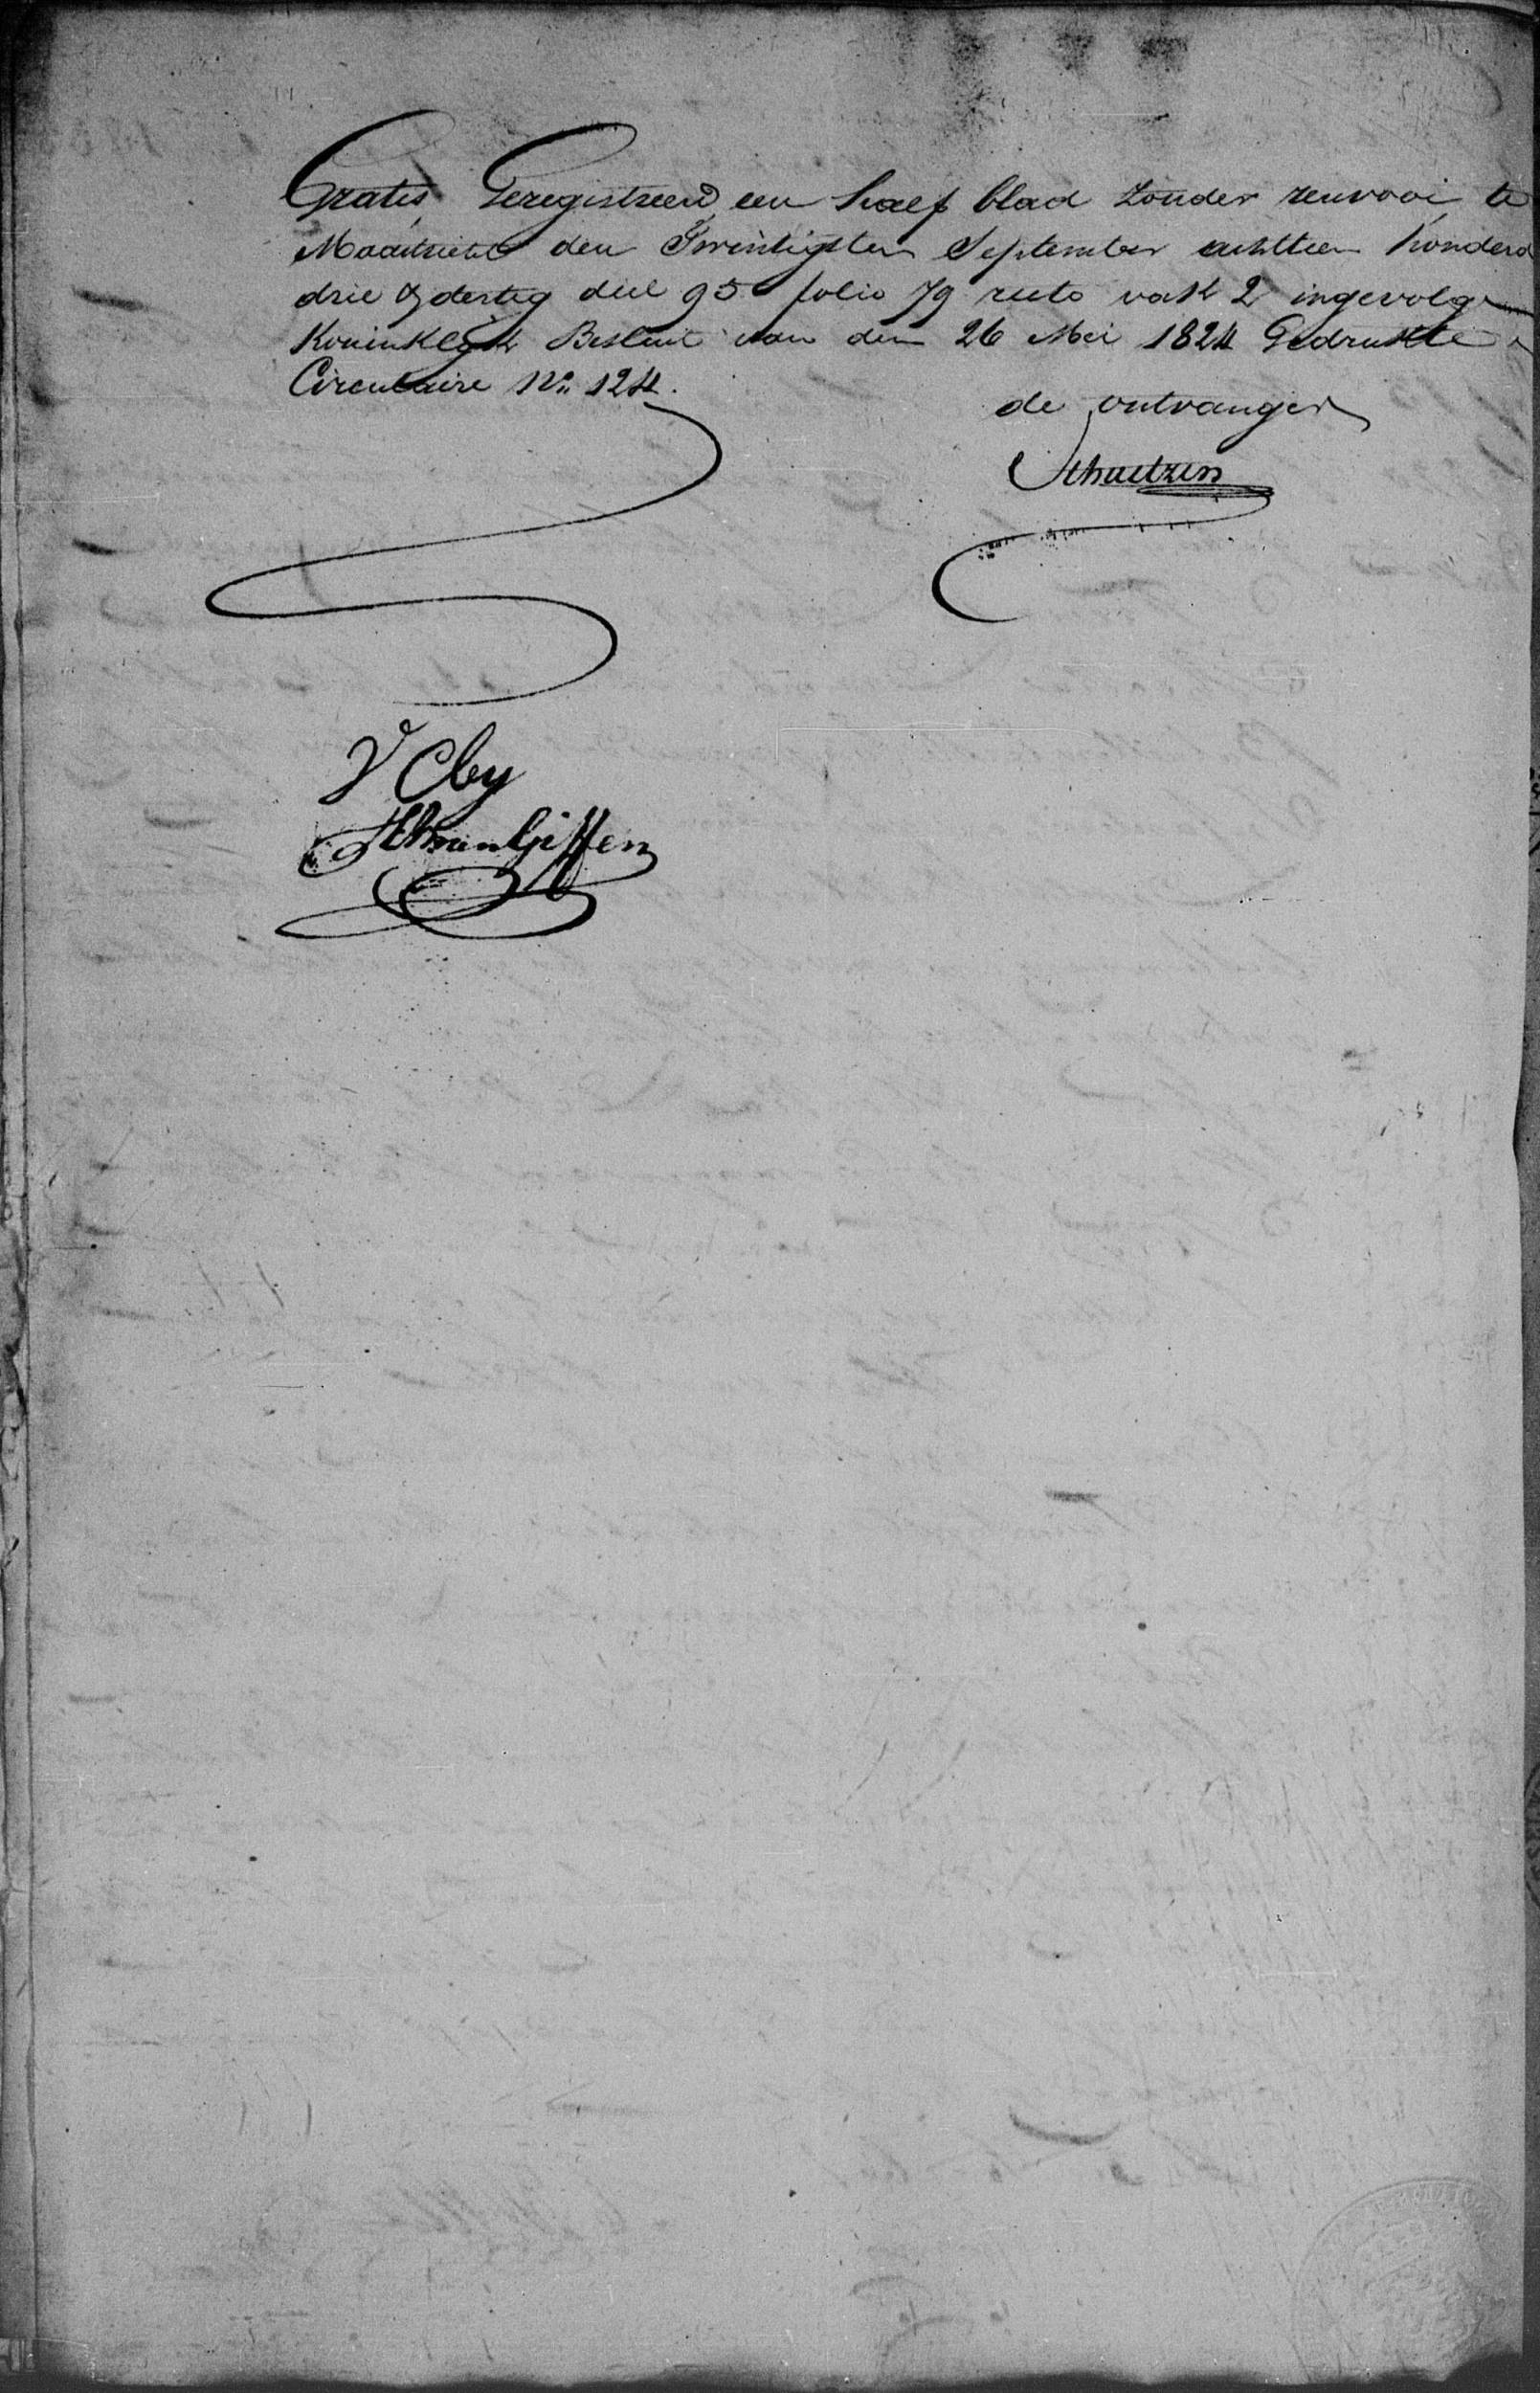 Gratis Geregistreerd een half blad zonder renvooi te
Maastricht den Twintigsten September achttien honderd
drie & dertig deel 95 folio 79 recto vak 2 ingevolge
Koninklijk Besluit van den 26 Mei 1824 Gedrukte
Circulaire No 124.
de ontvanger
Schuetzen